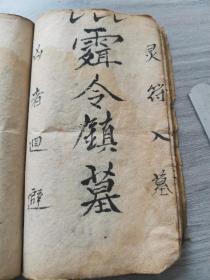 灵符入墓
令鎮墓
者回避